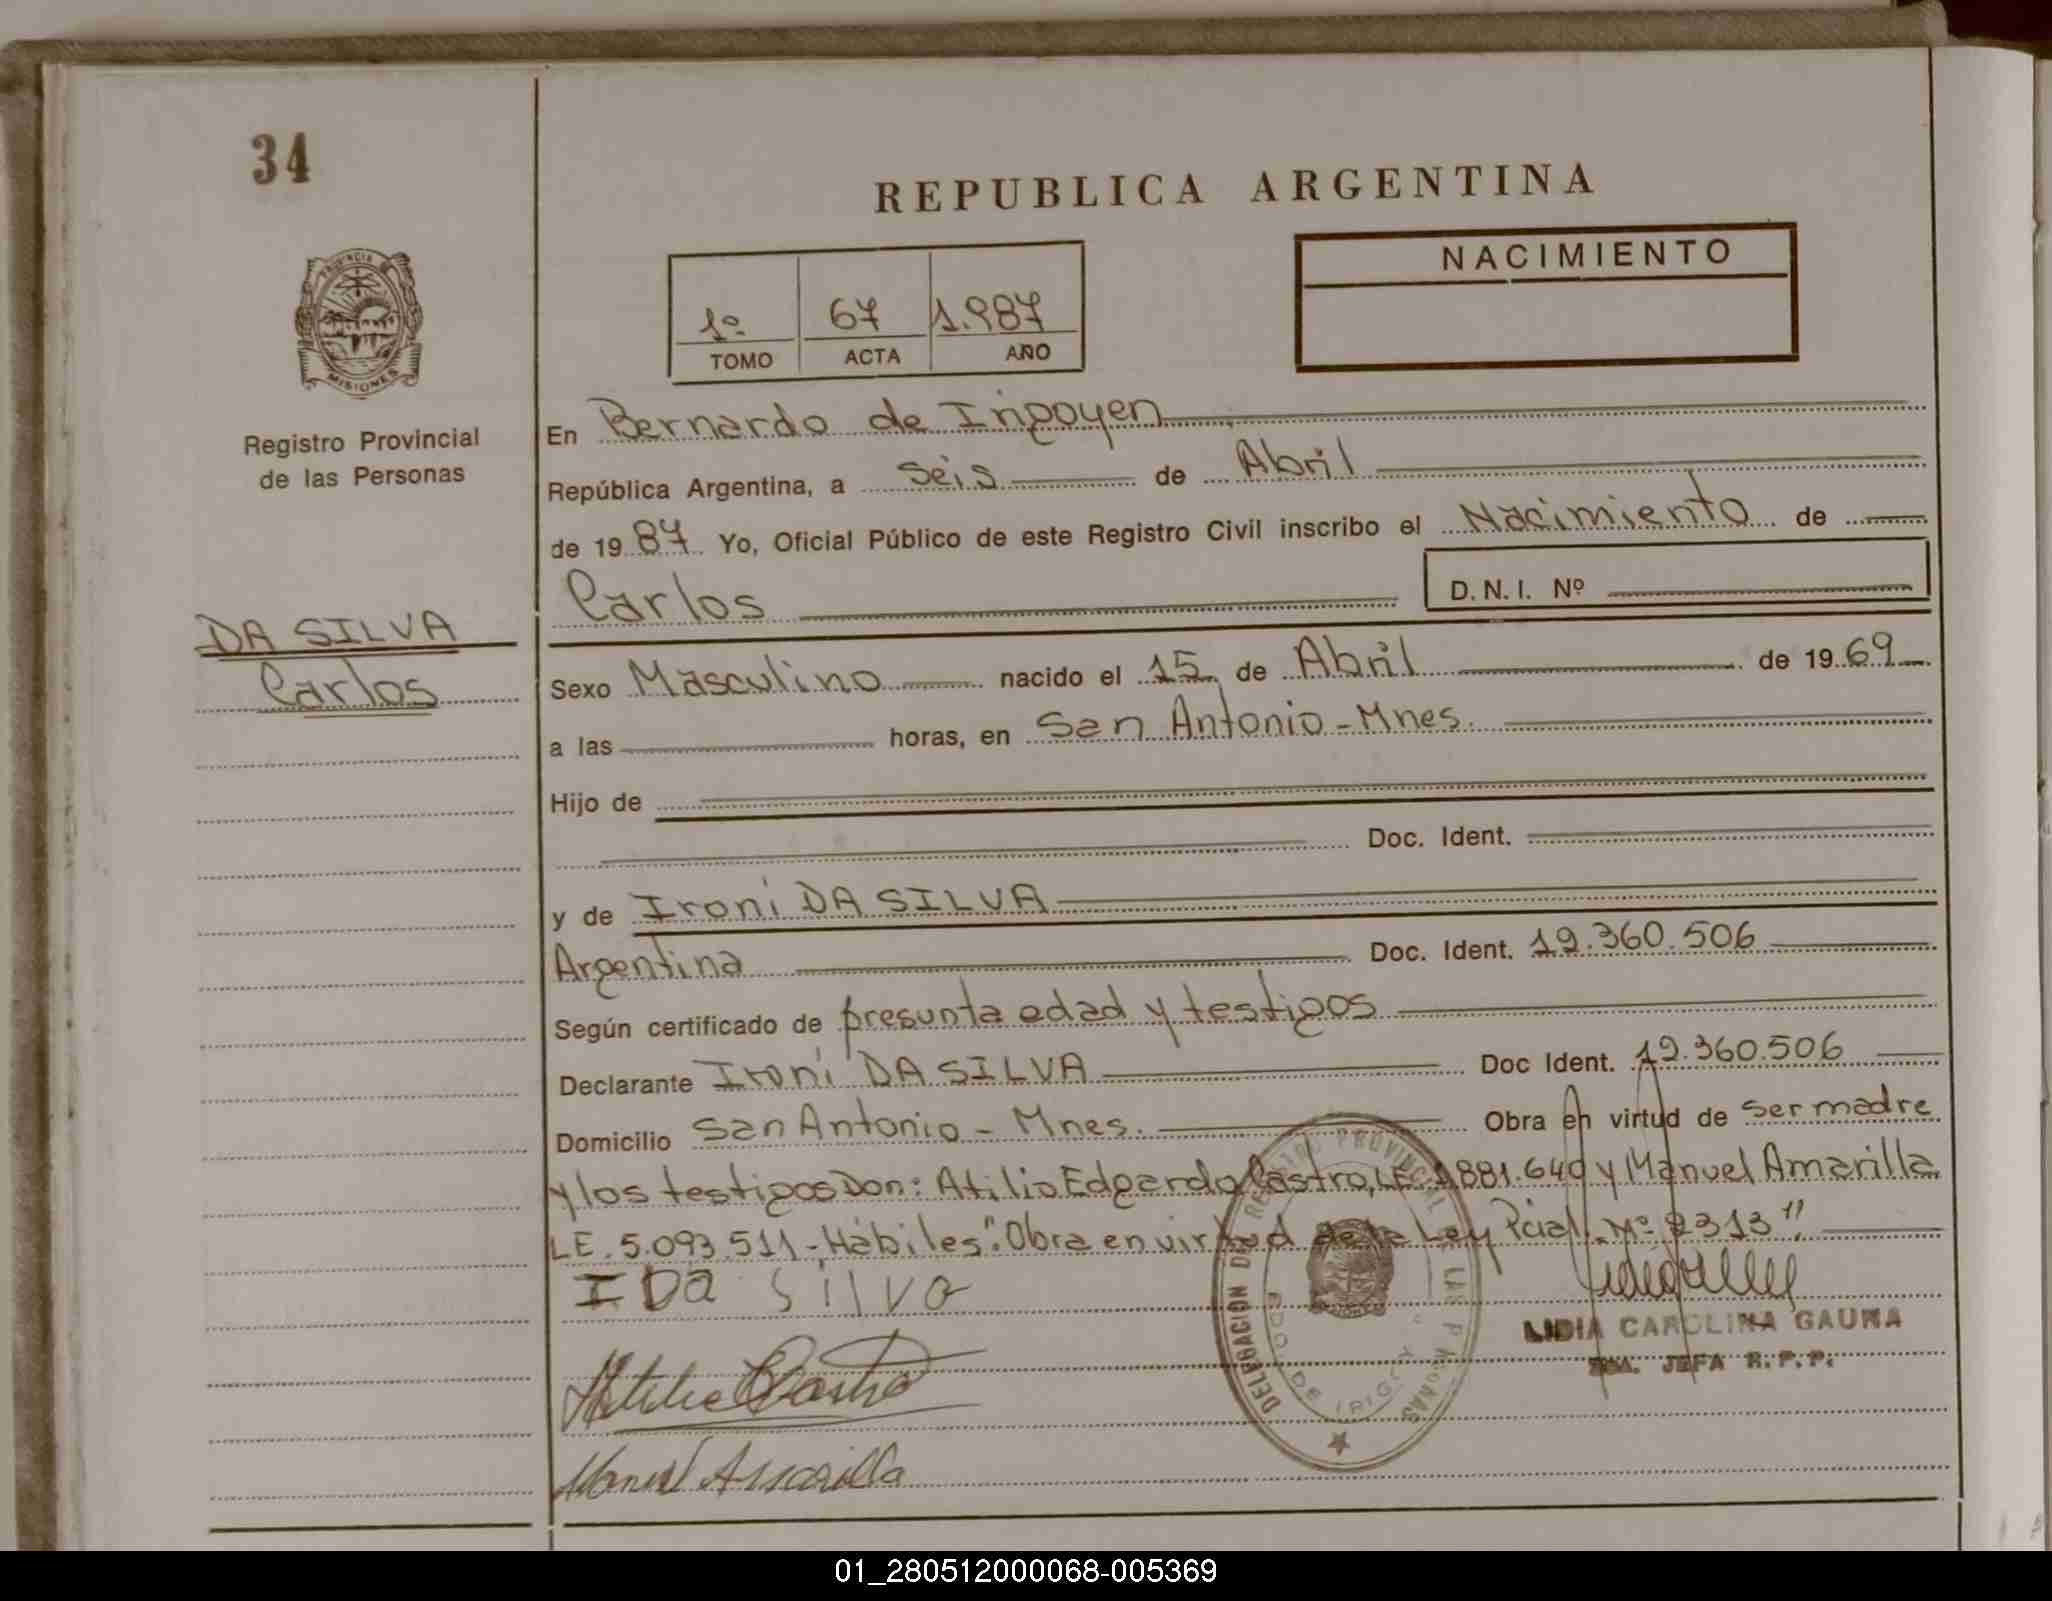 34
REPUBLICA ARGENTINA
NACIMIENTO
1º 67 1.987
TOMO ACTA AÑO
PROVINCIA DE
MISIONES
Registro Provincial
de las Personas
En Bernardo de Irigoyen
República Argentina, a seis de Abril
de 1987 Yo, Oficial Público de este Registro Civil inscribo el Nacimiento de
Carlos D.N.I. Nº
DA SILVA
Carlos
Sexo Masculino nacido el 15 de Abril de 1969
a las horas, en San Antonio - Mnes.
Hijo de
Doc. Ident.
y de Ironi DA SILVA
Argentina Doc. Ident. 12.360.506
Según certificado de presunta edad y testigos
Declarante Ironi DA SILVA Doc Ident. 12.360.506
Domicilio San Antonio - Mnes. Obra en virtud de ser madre
y los testigos Don: Atilio Edgardo Castro, LE 1881.640 y Manuel Amarilla
LE. 5.093.511 - Hábiles ". Obra en virtud de la Ley Pcial. Nº 2313"
I Da Silva
LIDIA CAROLINA GAUNA
JEFA R.P.P.
Atilio Castro
Manuel Amarilla
DELEGACION DEL REGISTRO PROVINCIAL DE LAS PERSONAS
BDO. DE IRIGOYEN
01_280512000068-005369